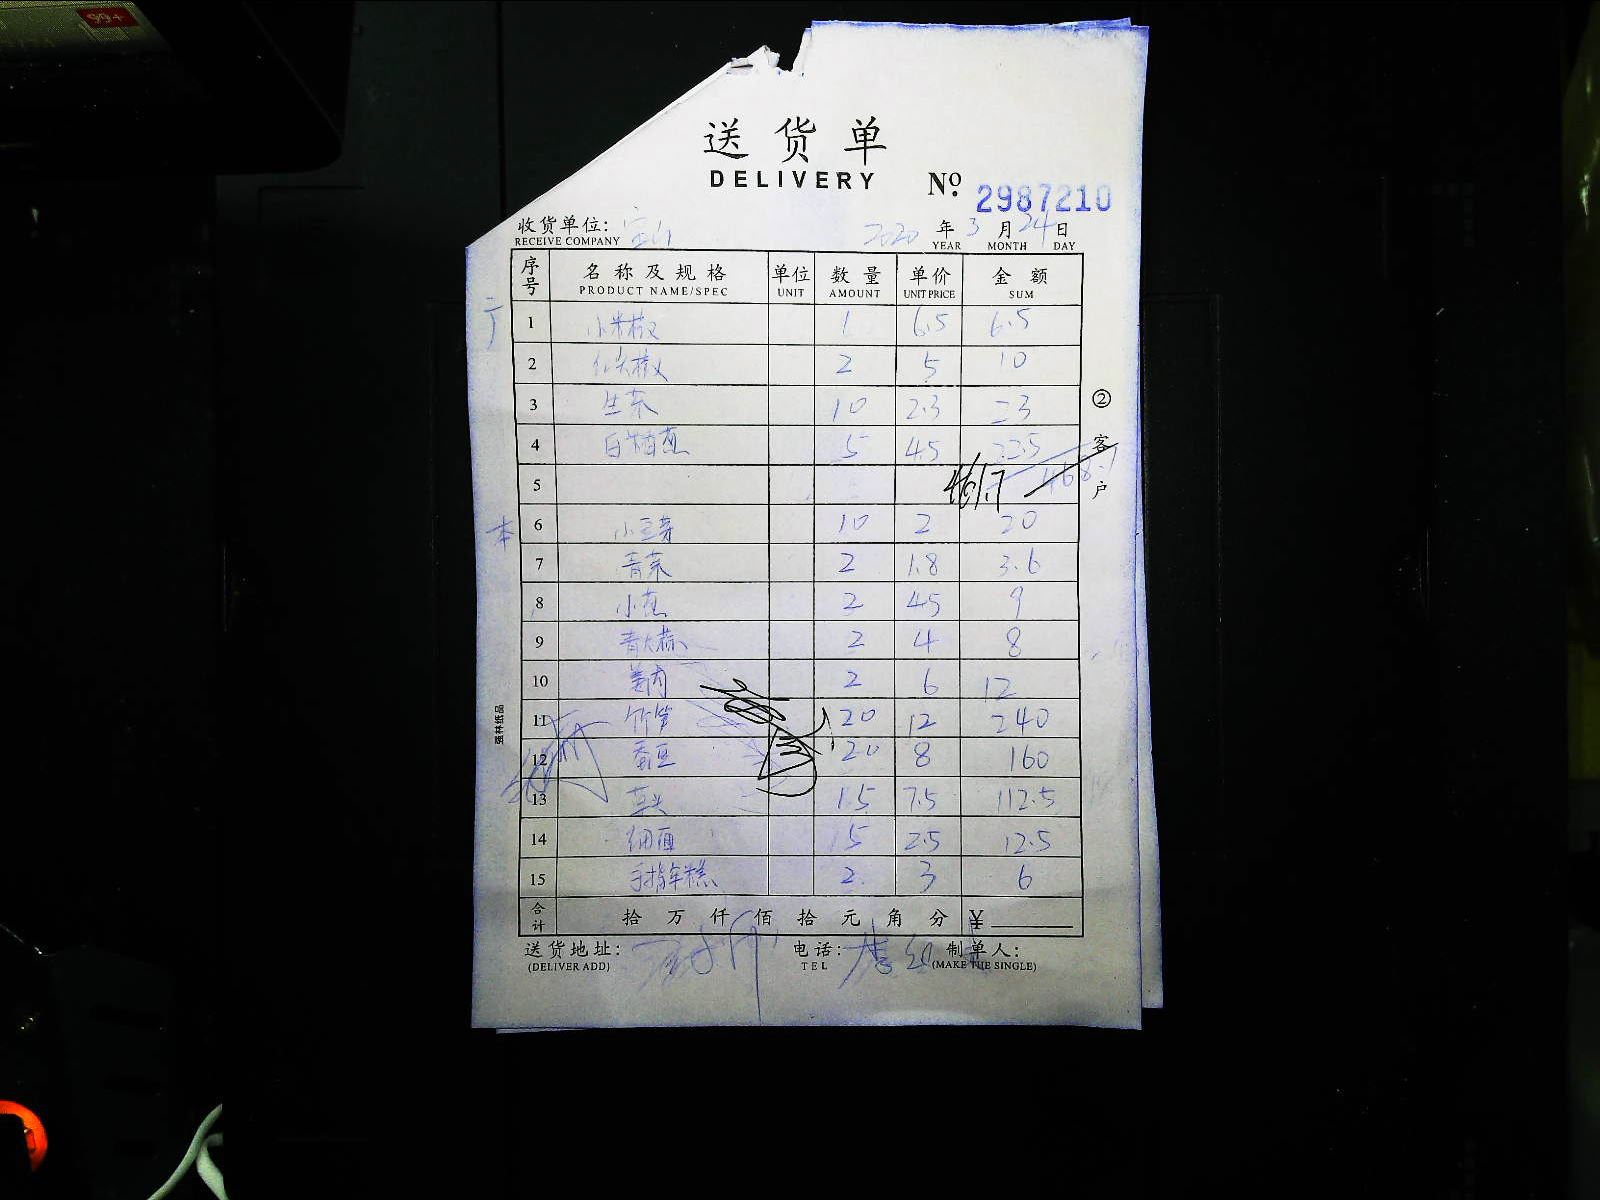 99+
送货单
DELIVERY
No. 2987210
收货单位: 宝山 2020 年 3 月 24 日
RECEIVE COMPANY YEAR MONTH DAY
序号 名称及规格 单位 数量 单价 金额
PRODUCT NAME/SPEC UNIT AMOUNT UNIT PRICE SUM
1 小米椒 1 6.5 6.5
2 2 5 10
3 生菜 10 2.3 23
4 5 4.5 22.5
5 461.7 468.1
6 小豆芽 10 2 20
7 青菜 2 1.8 3.6
8 小葱 2 4.5 9
9 青大蒜 2 4 8
10 姜肉 2 6 12
11 竹笋 20 12 240
12 蚕豆 20 8 160
13 草头 15 7.5 112.5
14 5 2.5 12.5
15 手指年糕 2 3 6
合计 拾 万 仟 佰 拾 元 角 分 ¥
送货地址: 电话: 制单人:
(DELIVER ADD) TEL (MAKE THE SINGLE)
② 客户
强林纸品